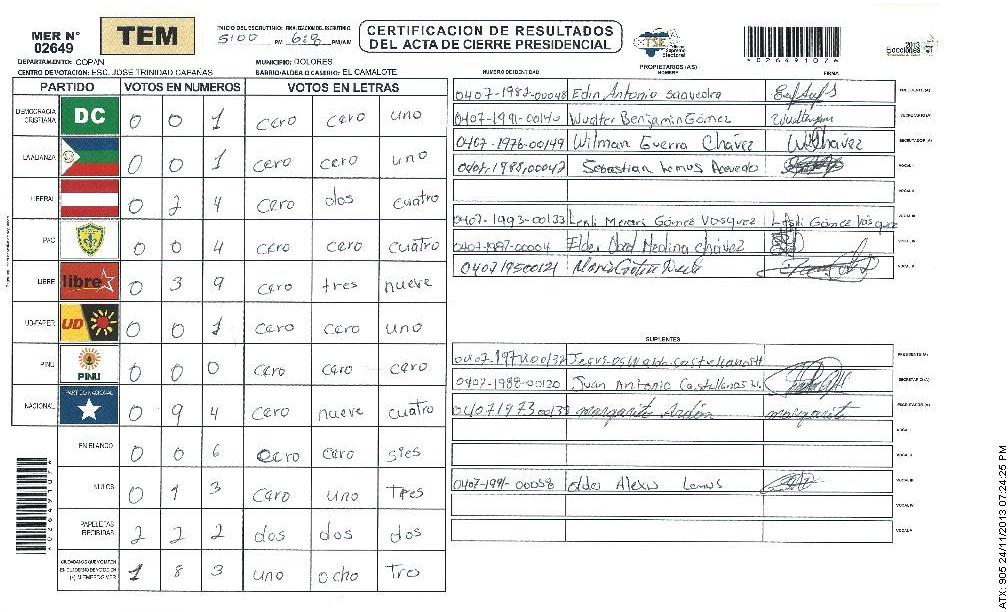 MER N° 02649
TEM
INICIO DEL ESCRUTINIO: FINALIZACION DEL ESCRUTINIO
5:00 PM 6:28 PM/AM
CERTIFICACION DE RESULTADOS
DEL ACTA DE CIERRE PRESIDENCIAL
TSE
Tribunal Supremo Electoral
*02649107*
2013
Elecciones
DEPARTAMENTO: COPAN MUNICIPIO: DOLORES
CENTRO DE VOTACION: ESC. JOSE TRINIDAD CABAÑAS BARRIO/ALDEA O CASERIO: EL CAMALOTE
PARTIDO VOTOS EN NUMEROS VOTOS EN LETRAS
DEMOCRACIA CRISTIANA DC 0 0 1 cero cero uno
LA ALIANZA 0 0 1 cero cero uno
LIBERAL 0 2 4 cero dos cuatro
PAC 0 0 4 cero cero cuatro
LIBRE libre 0 3 9 cero tres nueve
UD-FAPER UD 0 0 1 cero cero uno
PINU PINU 0 0 0 cero cero cero
NACIONAL PARTIDO NACIONAL 0 9 4 cero nueve cuatro
EN BLANCO 0 0 6 cero cero sies
NULOS 0 1 3 cero uno Tres
PAPELETAS RECIBIDAS 2 2 2 dos dos dos
CIUDADANOS QUE VOTARON EN CUADERNO DE VOTACION (+) MIEMBROS MER 1 8 3 uno ocho Tres
*02649107*
PROPIETARIOS (AS)
NUMERO DE IDENTIDAD NOMBRE FIRMA
0407-1982-00048 Edin Antonio Saavedra PRESIDENTE (A)
0407-1991-00140 Wualter Benjamin Gómez SECRETARIO (A)
0407-1976-00149 Wilman Guerra Chávez WGChávez ESCRUTADOR (A)
0407-1988-00047 Sebastian Lemus Acevedo VOCAL I
VOCAL II
0407-1993-00133 Lesli Merari Gómez Vasquez Lesli Gómez Vásquez VOCAL III
0407-1987-00041 Elder Medina Chávez VOCAL IV
040719500121 VOCAL V
SUPLENTES
Castellanos PRESIDENTE (A)
0407-1988-00120 Juan Antonio Castellanos SECRETARIO (A)
0407197300139 margarito Ardón margarito ESCRUTADOR (A)
VOCAL I
VOCAL II
0407-1991-00058 Elder Alexis Lemus VOCAL III
VOCAL IV
VOCAL V
ATX: 905 24/11/2013 07:24:25 PM